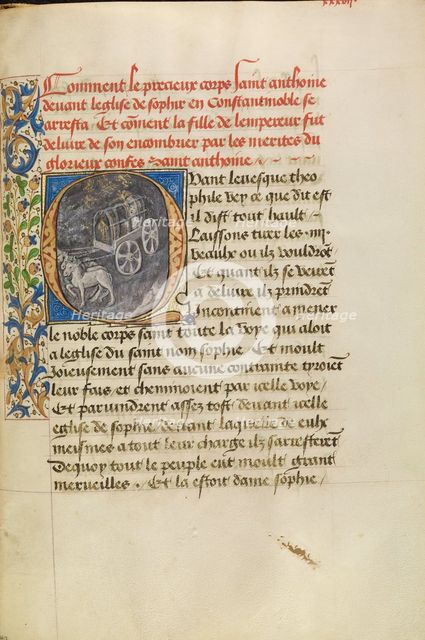 xxxvii
Comment le precieux corps saint anthoine
devant leglise de sophie en Constantinoble se
arresta Et cõment la fille de lempereur fut
delivre de son encombrier par les merites du
glorieux confes saint anthoine
Quant levesque theo
phile vey ce que dit est
il dist tout hault
Laissons tirer les
veaulx ou ilz vouldrõt
Et quant ilz se veirẽt
a delivre ilz prindrẽt
Incontinent a mener
le noble corps saint toute la voye qui aloit
a leglise du saint nom sophie Et moult
Joieusement sans aucune contrainte tyroiẽt
leur fais et cheminoient par icelle voye
Et parvindrent assez tost devant icelle
eglise de sophie devant laquelle de eulx
meismes a tout leur charge ilz sarresterẽt
Dequoy tout le peuple eut moult grant
merveilles Et la estoit dame sophie
Heritage
Images
Heritage
Images